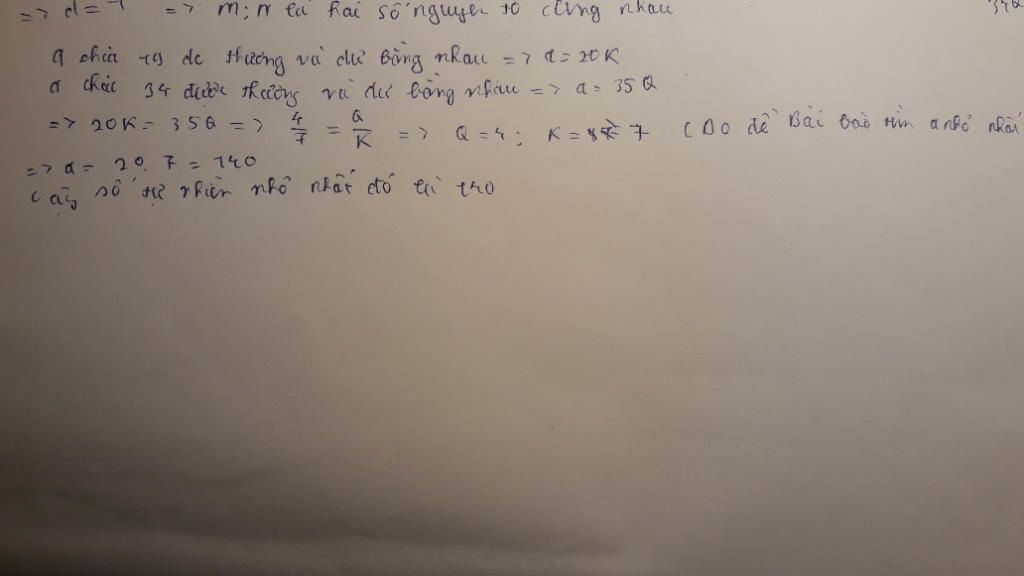 => d = 1 => m; n là hai số nguyên tố cùng nhau
a chia 19 dc thương và dư bằng nhau => a = 20K
a chia 34 được thương và dư bằng nhau => a = 35Q
=> 20K = 35Q => 4/7 = Q/K => Q = 4; K = 7 (DO đề Bài bảo tìm a nhỏ nhất
=> a = 20. 7 = 140
Vậy số tự nhiên nhỏ nhất đó là 140